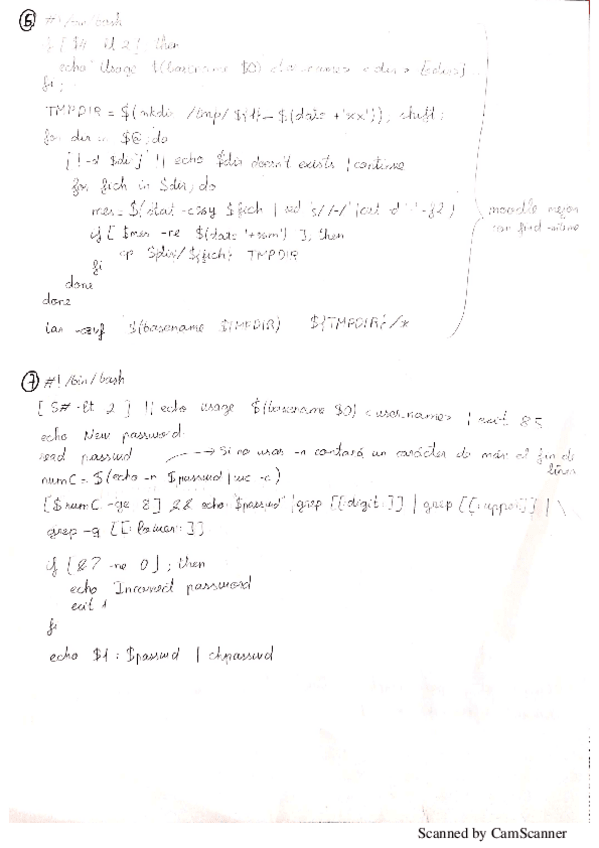 ⑥ #!/bin/bash
if [ $# -lt 2 ], then
echo "Usage $(basename $0) <username> <dir> [<dirs>]
fi;
TMPDIR = $(mkdir /tmp/ ${1}_ $(date +'xx')), shift;
for dir in $@, do
[ ! -d $dir ] || echo $dir doesn't exists | continue
for fich in $dir, do
mes = $(stat $fich | sed 's/ /-/' | cut -d '-' -f2)
if [ $mes -ne $(date '+%m') ], then
cp $dir/${fich} TMPDIR
fi
done
done
tar $(basename $TMPDIR) ${TMPDIR}/*
moodle mejor
con find
⑦ #!/bin/bash
[ $# -lt 2 ] || echo usage $(basename $0) <user_name> | exit 85
echo New password
read passwd
→ Si no usas -n contará un carácter de más al fin de
línea
numC = $(echo -n $passwd | wc -c)
[ $numC -ge 8 ] && echo "$passwd" | grep [[:digit:]] | grep [[:upper:]] | \
grep -q [[:lower:]]
if [ $? -ne 0 ]; then
echo Incorrect password
exit 1
fi
echo $1 : $passwd | chpasswd
Scanned by CamScanner